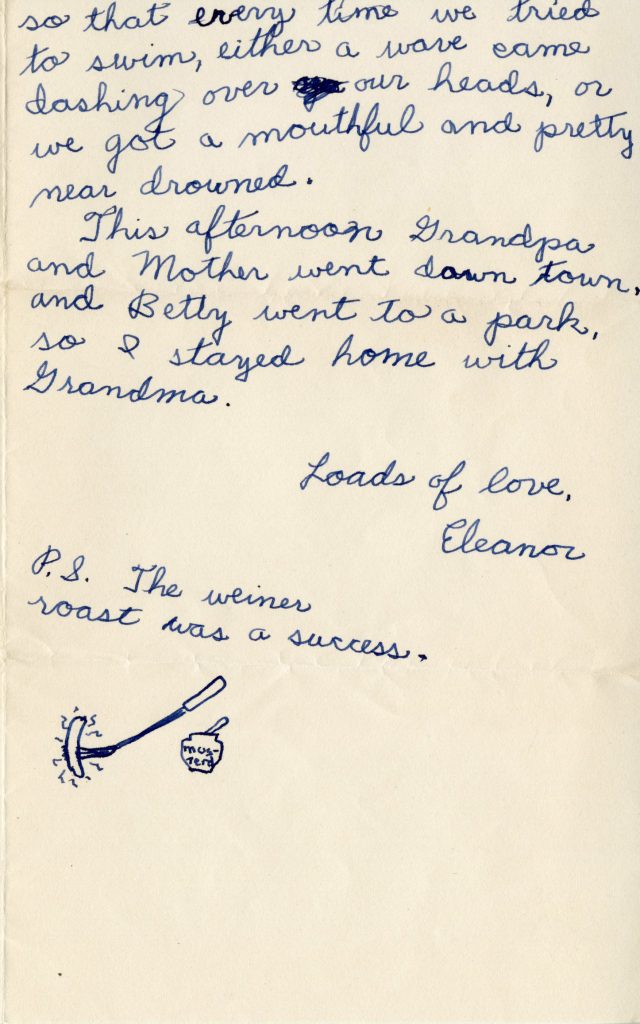 so that every time we tried
to swim, either a wave came
dashing over our heads, or
we got a mouthful and pretty
near drowned.
This afternoon Grandpa
and Mother went down town,
and Betty went to a park,
so I stayed home with
Grandma.
Loads of love,
Eleanor
P.S. The weiner
roast was a success.
mus-
terd